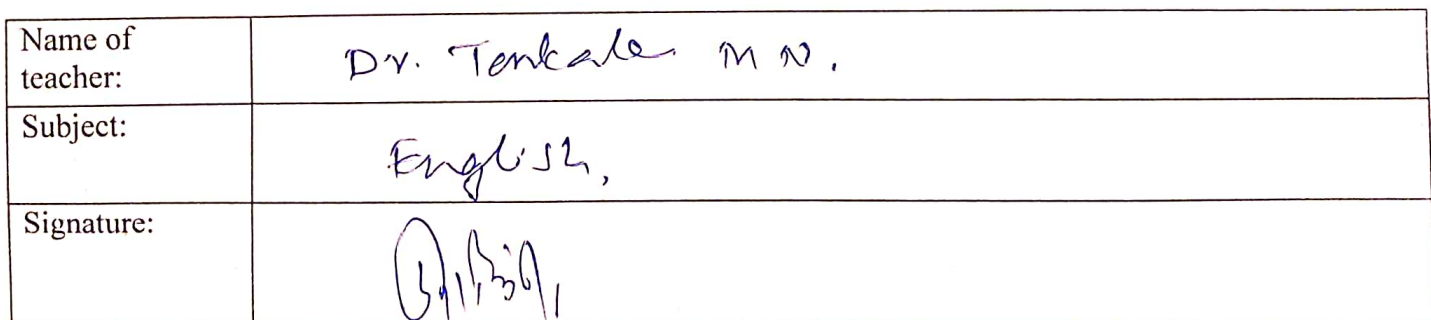 Name of
teacher:
Dr. Tenkale M N.
Subject:
English,
Signature: